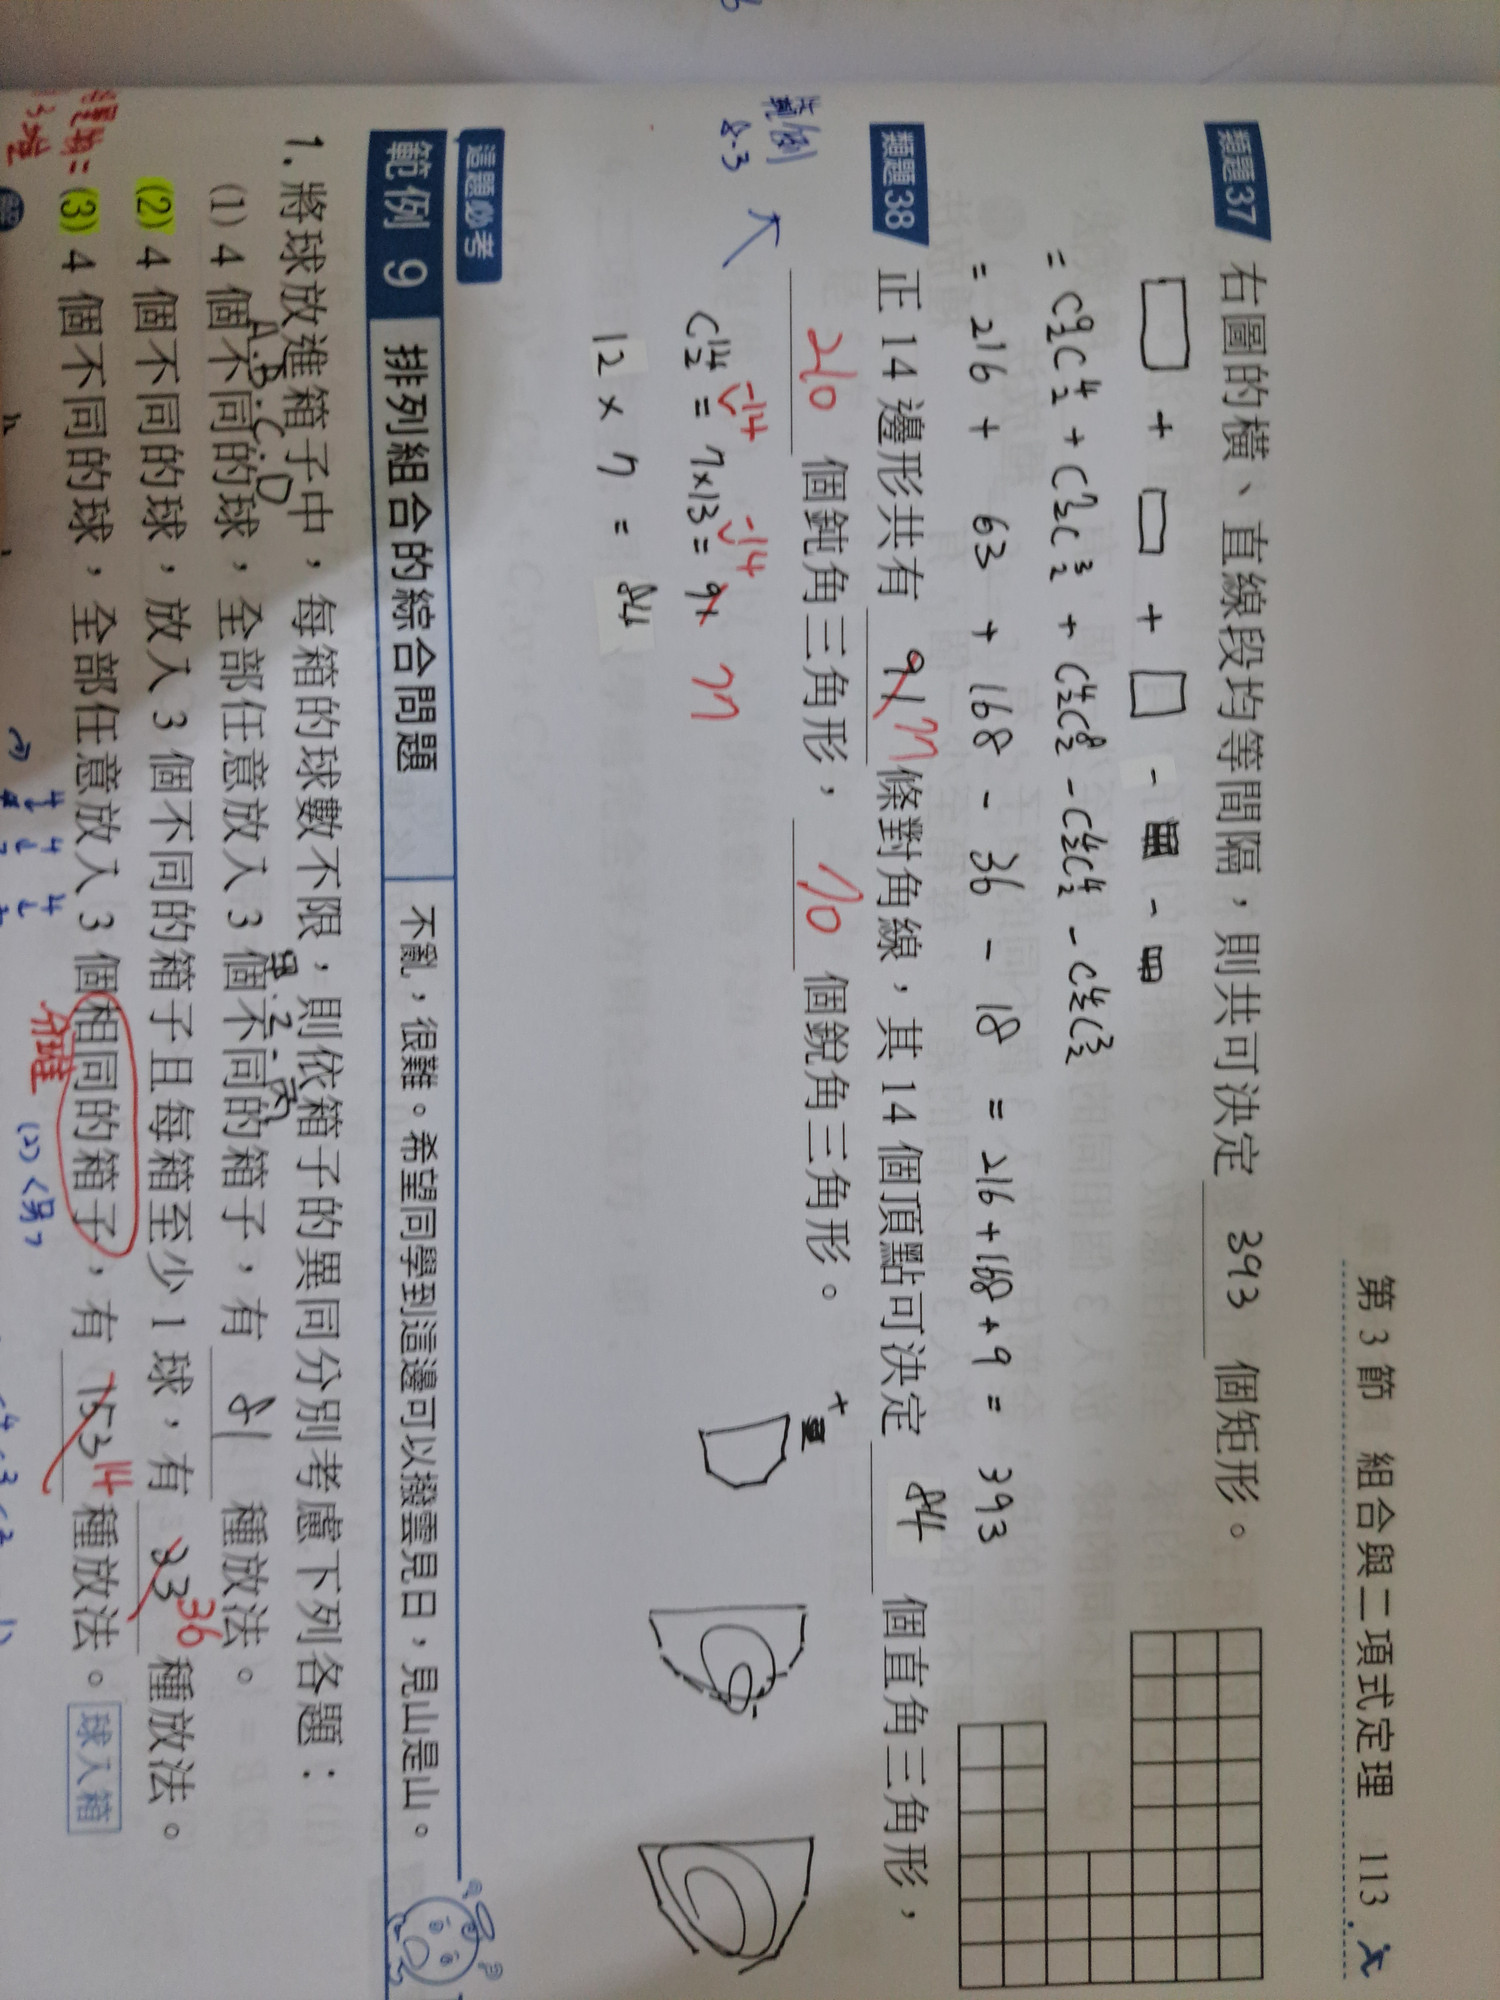 第 3 節 組合與二項式定理 113
類題37 右圖的橫、直線段均等間隔,則共可決定 393 個矩形。
▭ + ▭ + □ - -
= C⁹₂C⁴₂ + C⁷₂C³₂ + C⁴₂C⁸₂ - C⁴₂C⁴₂ - C⁴₂C³₂
= 216 + 63 + 168 - 36 - 18 = 216+168+9 = 393
類題38 正 14 邊形共有 91 77 條對角線,其 14 個頂點可決定 84 個直角三角形,
210 個鈍角三角形, 70 個銳角三角形。
範例
8-3
-14 -14
C¹⁴₂ = 7×13 = 91 77
12 × 7 = 84
這題必考
範例 9 排列組合的綜合問題 不亂,很難。希望同學到這邊可以撥雲見日,見山是山。
1. 將球放進箱子中,每箱的球數不限,則依箱子的異同分別考慮下列各題:
A.B.C.D
(1) 4 個不同的球,全部任意放入 3 個不同的箱子,有 81 種放法。
(2) 4 個不同的球,放入 3 個不同的箱子且每箱至少 1 球,有 33 36 種放法。
(3) 4 個不同的球,全部任意放入 3 個相同的箱子,有 153 14 種放法。 球入箱
分堆
(2)